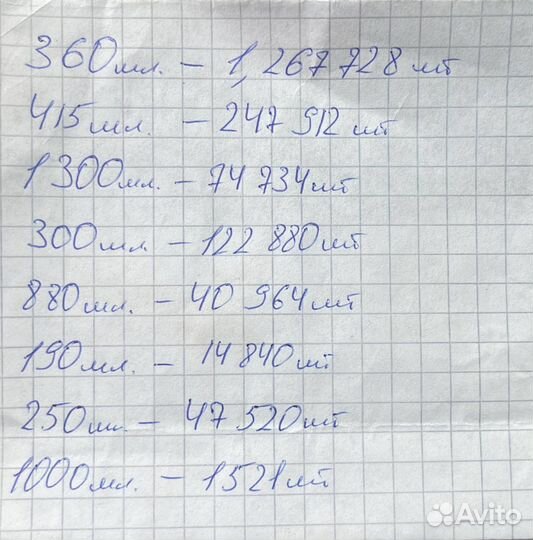 360мл. – 1,267 728 шт
415мл. – 247 912 шт
1300мл. – 74 734 шт
300мл – 122 880 шт
880мл. – 40 964 шт
190мл. – 14 840 шт
250мл. – 47 520 шт
1000мл. – 1521 шт
Avito